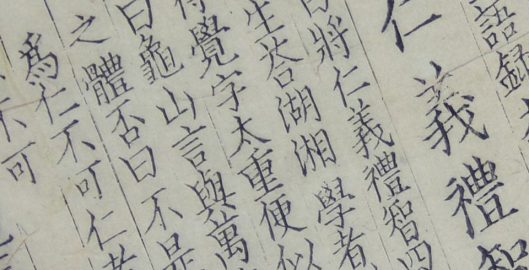 語録
仁義禮智
將仁義禮智四
生荅湖湘學者
得覺字太重便似
曰龜山言與萬
之體否曰不是
為仁不可仁者
不可